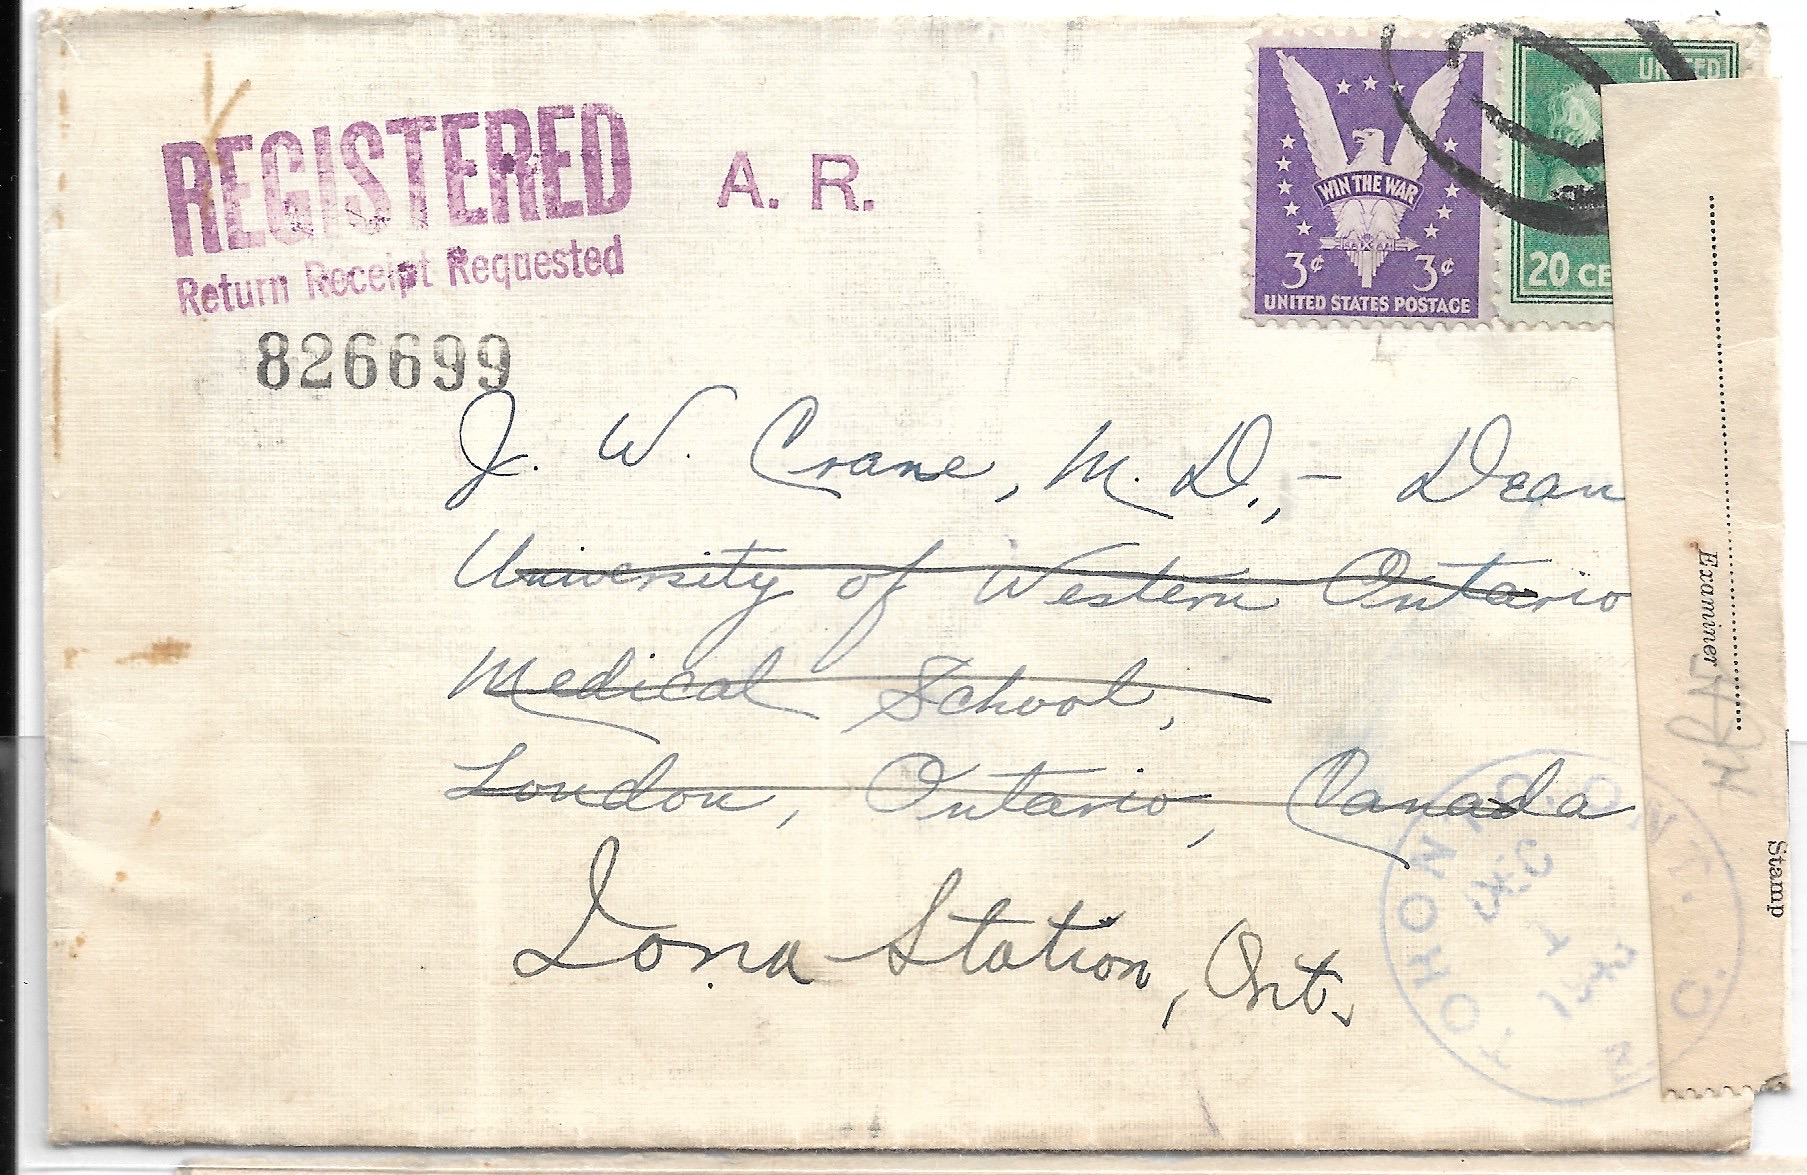 REGISTERED
Return Receipt Requested
A. R.
826699
WIN THE WAR
3¢ 3¢
UNITED STATES POSTAGE
UNITED
20 CE
J. W. Crane, M. D., - Dean
University of Western Ontario
Medical School,
London, Ontario, Canada
Iona Station, Ont.
Examiner
Stamp
TORONTO
DEC
1